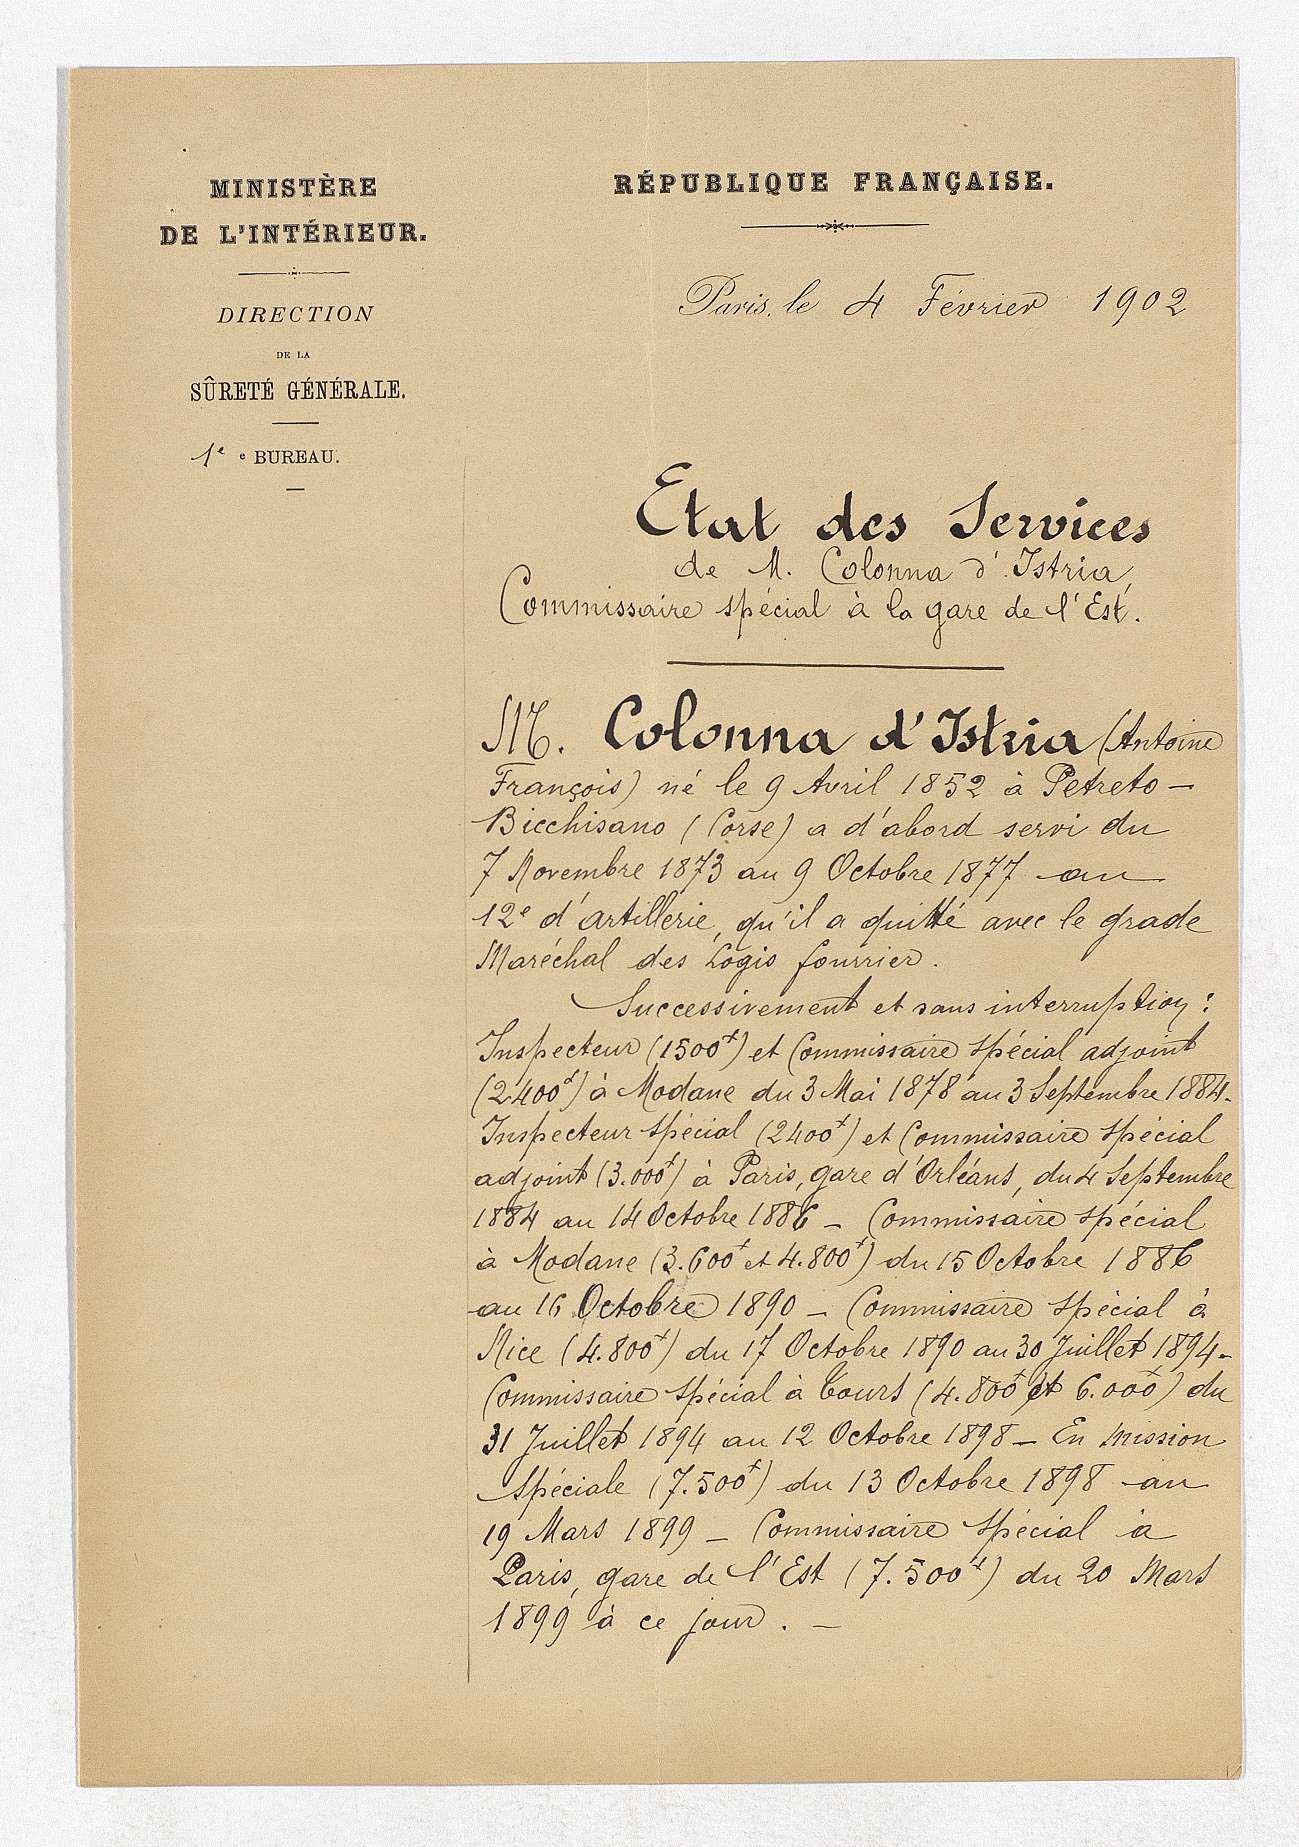 MINISTÈRE
DE L'INTÉRIEUR.
DIRECTION
DE LA
SÛRETÉ GÉNÉRALE.
1e e BUREAU.
RÉPUBLIQUE FRANÇAISE.
Paris, le 4 Février 1902
Etat des Services
de M. Colonna d'Istria,
Commissaire spécial à la gare de l'Est.
M. Colonna d'Istria (Antoine
François) né le 9 Avril 1852 à Petreto-
Bicchisano (Corse) a d'abord servi du
7 Novembre 1873 au 9 Octobre 1877 au
12e d'artillerie, qu'il a quitté avec le grade
Maréchal des Logis fourrier.
Successivement et sans interruption :
Inspecteur (1500f) et Commissaire spécial adjoint
(2400f) à Modane du 3 Mai 1878 au 3 Septembre 1884-
Inspecteur spécial (2400f) et Commissaire spécial
adjoint (3.000f) à Paris, gare d'Orléans, du 4 Septembre
1884 au 14 Octobre 1886 - Commissaire spécial
à Modane (3.600f et 4.800f) du 15 Octobre 1886
au 16 Octobre 1890 - Commissaire spécial à
Nice (4.800f) du 17 Octobre 1890 au 30 Juillet 1894-
Commissaire spécial à Tours (4.800f et 6.000f) du
31 Juillet 1894 au 12 Octobre 1898 - En mission
spéciale (7.500f) du 13 Octobre 1898 au
19 Mars 1899 - Commissaire spécial à
Paris, gare de l'Est (7.500f) du 20 Mars
1899 à ce jour. -